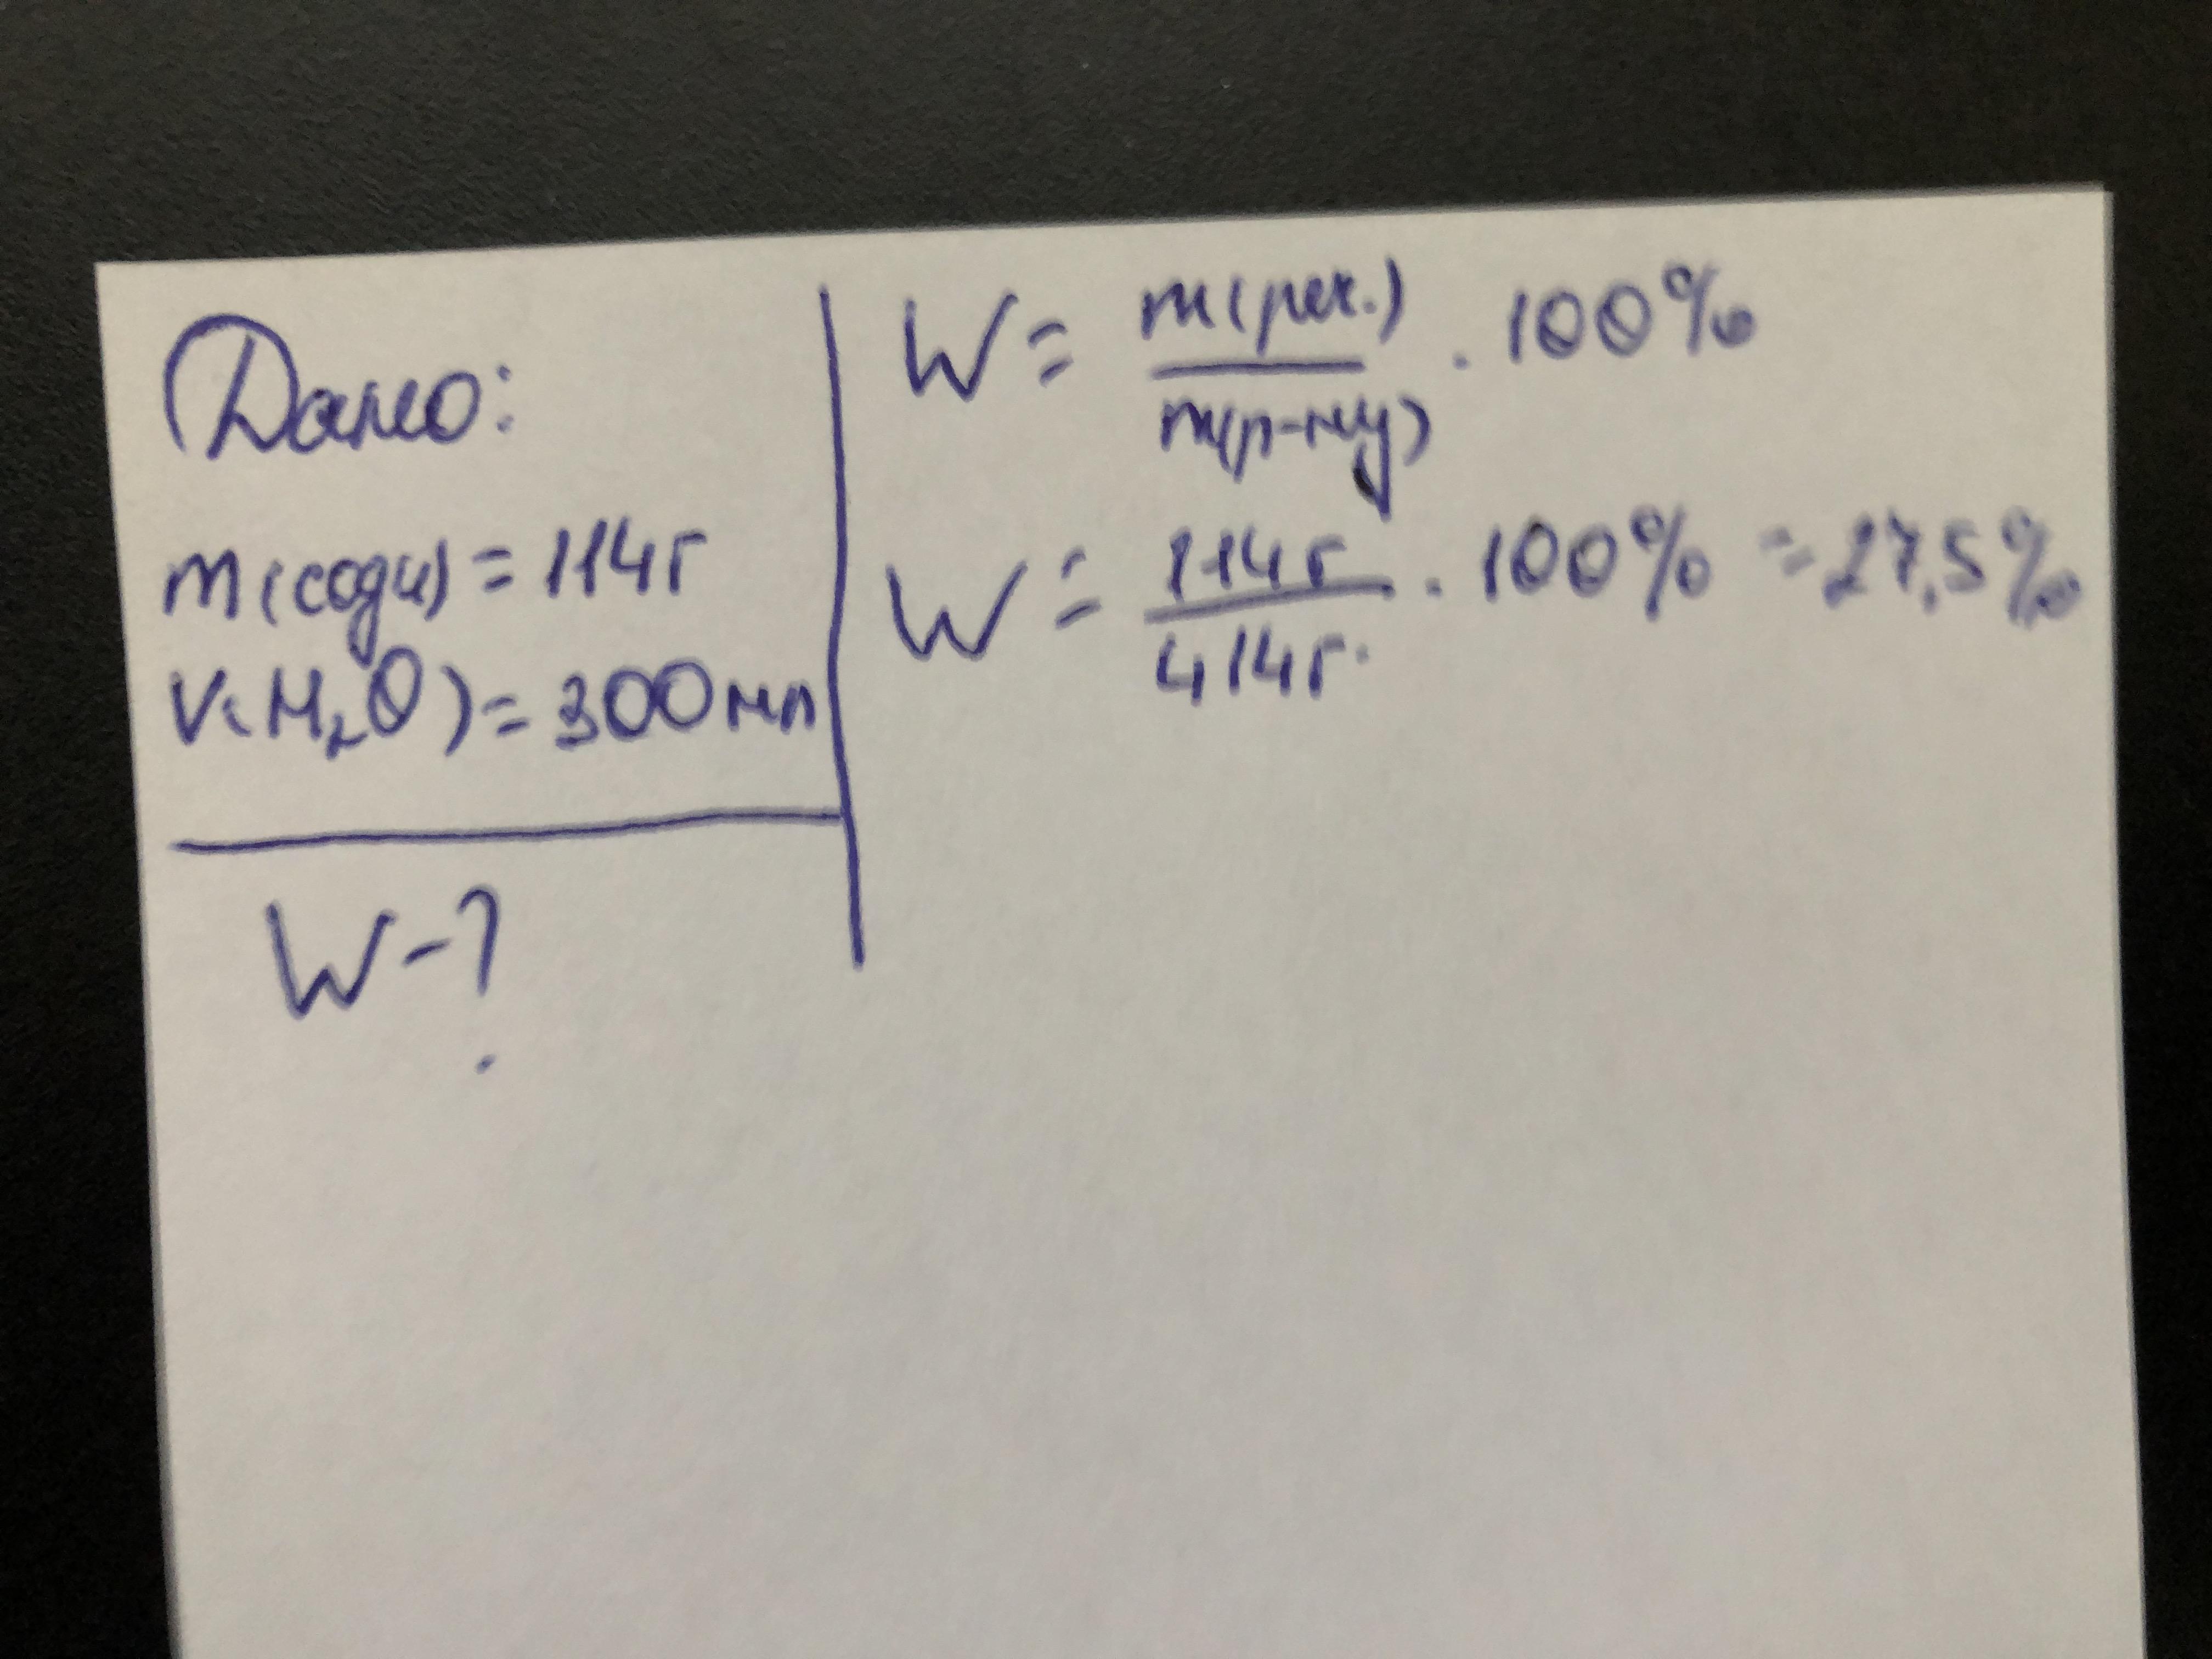 Дано:
m(соди) = 114г
V(H₂O) = 300мл
W-?
W = m(реч.) / m(р-ну) · 100%
W = 114г / 414г. · 100% = 27,5%